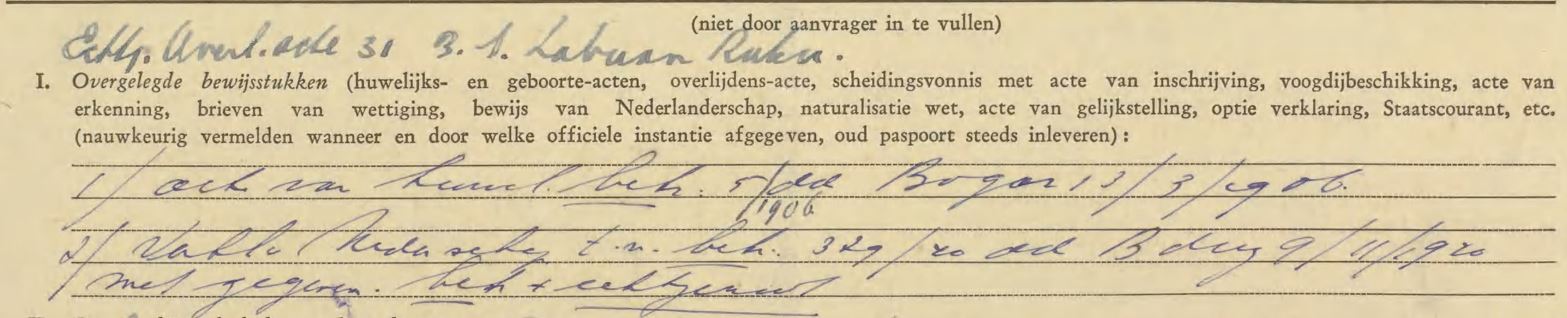 (niet door aanvrager in te vullen)
Echtg. Overl. acte 31 B.S. Labuan Ruku.
I. Overgelegde bewijsstukken (huwelijks- en geboorte-acten, overlijdens-acte, scheidingsvonnis met acte van inschrijving, voogdijbeschikking, acte van
erkenning, brieven van wettiging, bewijs van Nederlanderschap, naturalisatie wet, acte van gelijkstelling, optie verklaring, Staatscourant, etc.
(nauwkeurig vermelden wanneer en door welke officiele instantie afgegeven, oud paspoort steeds inleveren):
1/ acte van huwel. betr. 5/1906 dd Bogor 13/3/1906.
2/ Nederschap t.n. betr. 329/20 dd Bdung 9/11/1920
met gegeven. betr + echtgenoot